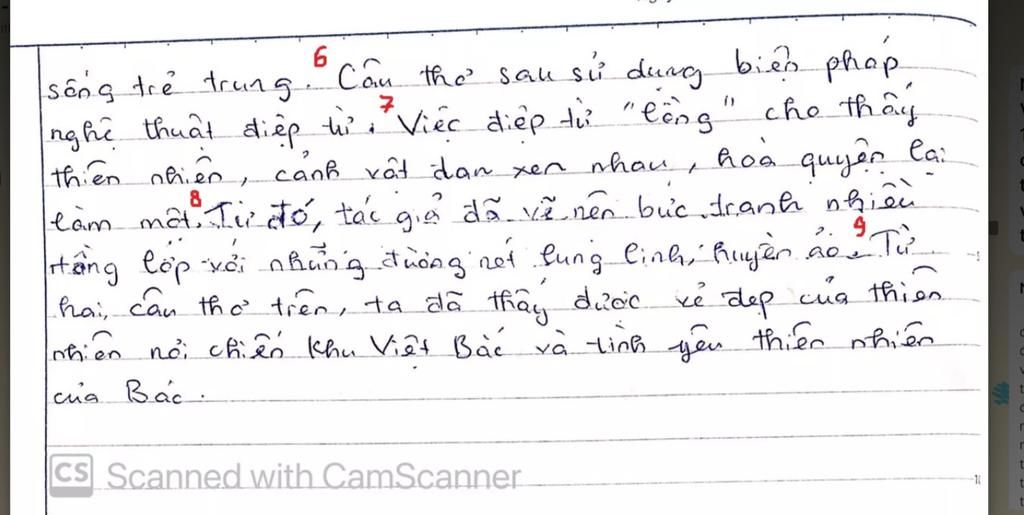 6
sống trẻ trung. Câu thơ sau sử dụng biện pháp
7
nghệ thuật điệp từ. Việc điệp từ "lồng" cho thấy
thiên nhiên, cảnh vật đan xen nhau, hoà quyện lại
8
làm một. Từ đó, tác giả đã vẽ nên bức tranh nhiều
9
tầng lớp với những đường nét lung linh, huyền ảo. Từ
hai câu thơ trên, ta đã thấy được vẻ đẹp của thiên
nhiên nơi chiến khu Việt Bắc và tình yêu thiên nhiên
của Bác.
CS Scanned with CamScanner